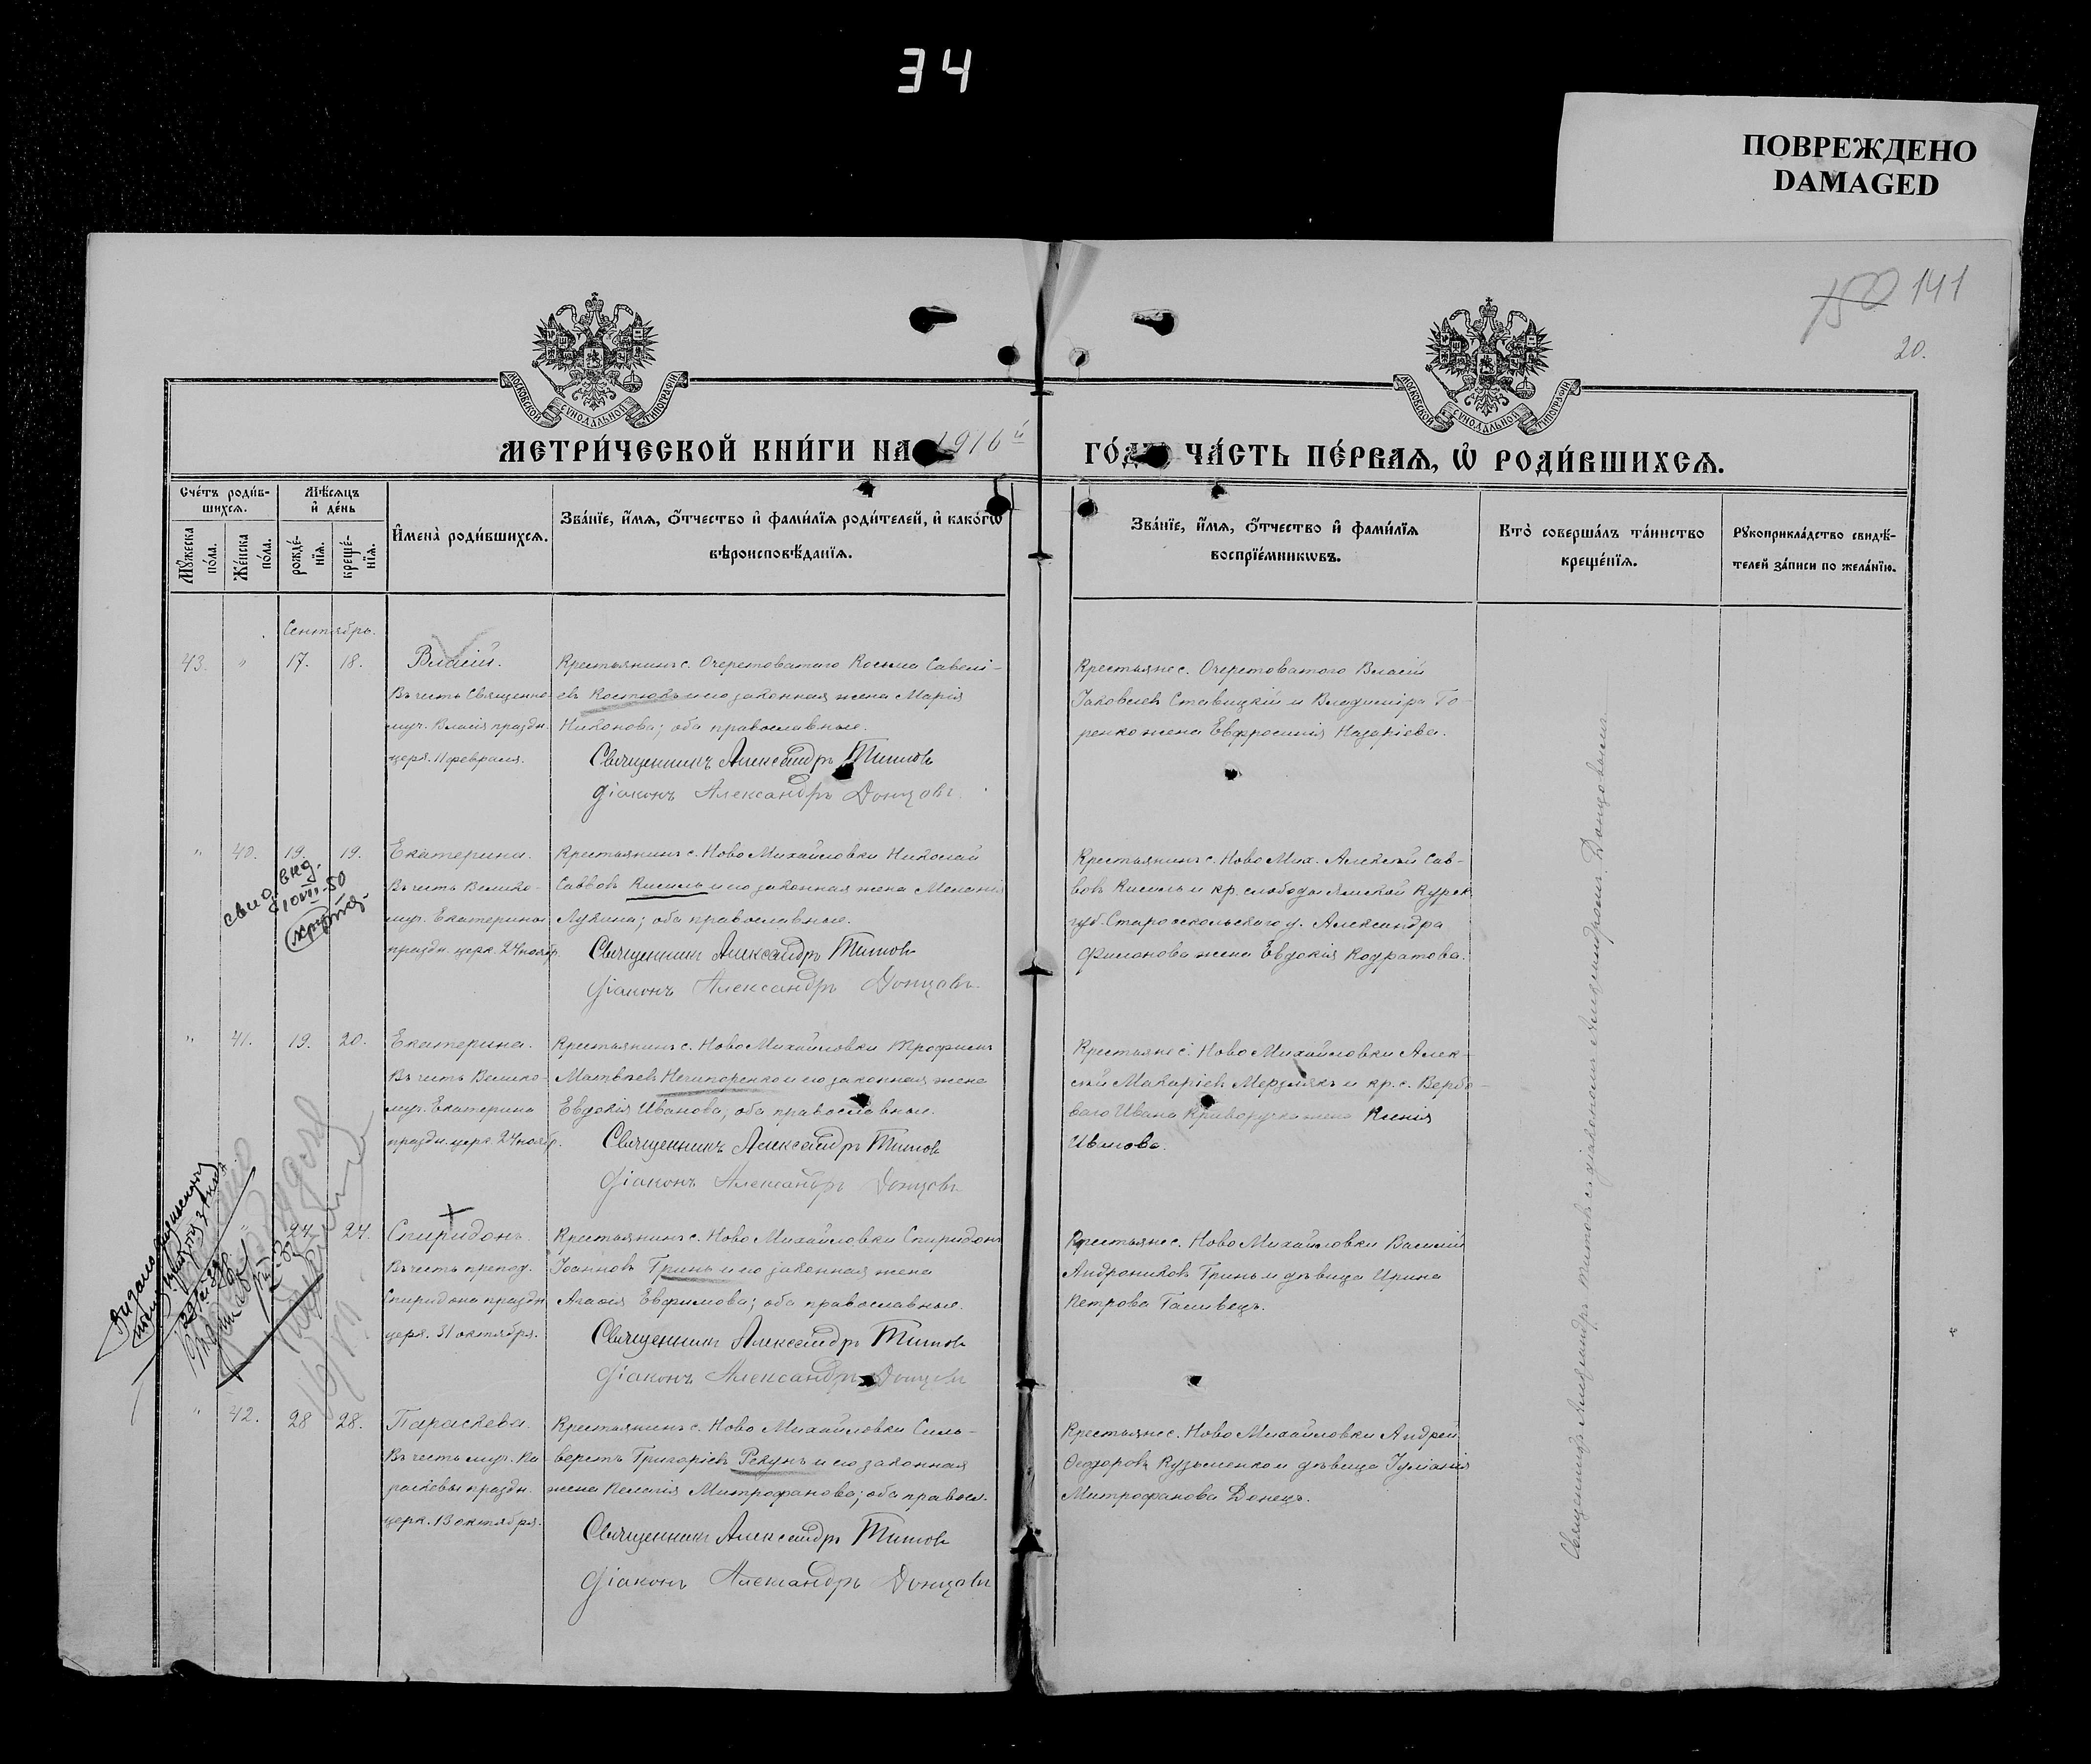 34
ПОВРЕЖДЕНО
DAMAGED
150 141
20.
МОСКОВСКОЙ СУНОДАЛЬНОЙ ТИПОГРАФІИ
МОСКОВСКОЙ СУНОДАЛЬНОЙ ТИПОГРАФІИ
МЕТРИ́ЧЕСКОЙ КНИ́ГИ НА 1916й
ГО́ДЪ ЧА́СТЬ ПЕ́РВАѦ, Ѡ҆ РОДИ́ВШИХСѦ.
Сче́тъ роди́в-
шихсѧ.
Мꙋ́жеска по́ла.
Же́нска по́ла.
Мѣ́сѧцъ
и҆ де́нь
рожде́-
нїѧ.
креще́-
нїѧ.
И҆мена̀ роди́вшихсѧ.
Зва́нїе, и҆́мѧ, ѻ҆́тчество и҆ фами́лїѧ роди́телей, и҆ како́гѡ
вѣроисповѣ́данїѧ.
Зва́нїе, и҆́мѧ, ѻ҆́тчество и҆ фами́лїѧ
воспрїе́мникѡвъ.
Кто̀ соверша́лъ та́инство
креще́нїѧ.
Рꙋкоприкла́дство свидѣ́-
телей за́писи по жела́нїю.
Сентябрь.
43. " 17. 18.
Власій.
Въ честь Священно-
муч. Власія праздн.
церк. 11 февраля.
Крестьянинъ с. Очеретоватаго Косьма Савелі-
евъ Костюкъ и его законная жена Марія
Никонова; оба православные.
Священникъ Александръ Титовъ
Діаконъ Александръ Донцовъ.
Крестьяне с. Очеретоватого Власій
Іаковлевъ Ставицкій и Владиміра Го-
ренко жена Евфросинія Назаріева.
" 40. 19. 19.
свид. выд.
10 VIII-50
Екатерина.
Въ честь Велико-
муч. Екатерины
праздн. церк. 24 ноябр.
Крестьянинъ с. Ново Михайловки Николай
Саввовъ Кисиль и его законная жена Меланія
Лукина; оба православные.
Священникъ Александръ Титовъ
Діаконъ Александръ Донцовъ.
Крестьянинъ с. Ново Мих. Алексѣй Сав-
вовъ Кисиль и кр. слободы Ямской Курск.
губ. Старооскольского у. Александра
Филонова жена Евдокія Кодратова.
" 41. 19. 20.
Екатерина.
Въ честь Велико-
муч. Екатерины
праздн. церк. 24 ноябр.
Крестьянинъ с. Ново Михайловки Трофимъ
Матвѣевъ Нечипоренко и его законная жена
Евдокія Иванова; оба православные.
Священникъ Александръ Титовъ
Діаконъ Александръ Донцовъ.
Крестьяне с. Ново Михайловки Алек-
сѣй Макаріевъ Мерзлякъ и кр. с. Вербо-
ваго Ивана Криворучка жена Ксенія
" 24. 24.
Спиридонъ.
Въ честь препод.
Спиридона праздн.
церк. 31 октября.
Крестьянинъ с. Ново Михайловки Спиридонъ
Іоанновъ Гринь и его законная жена
Агафія Евфимова; оба православные.
Священникъ Александръ Титовъ
Діаконъ Александръ Донцовъ
Крестьяне с. Ново Михайловки Василій
Андрониковъ Гринь и дѣвица Ирина
Петрова Галивецъ.
" 42. 28 28.
Параскева.
Въ честь муч. Па
раскевы праздн.
церк. 13 октября.
Крестьянинъ с. Ново Михайловки Силь-
верстъ Григоріевъ Рекунъ и его законная
жена Пелагія Митрофанова; оба правосл.
Священникъ Александръ Титовъ
Діаконъ Александръ Донцовъ
Крестьяне с. Ново Михайловки Андрей
Ѳеодоровъ Кузьменко и дѣвица Іуліанія
Митрофанова Донецъ.
Священникъ Александръ Титовъ съ діакономъ Александромъ Донцовымъ